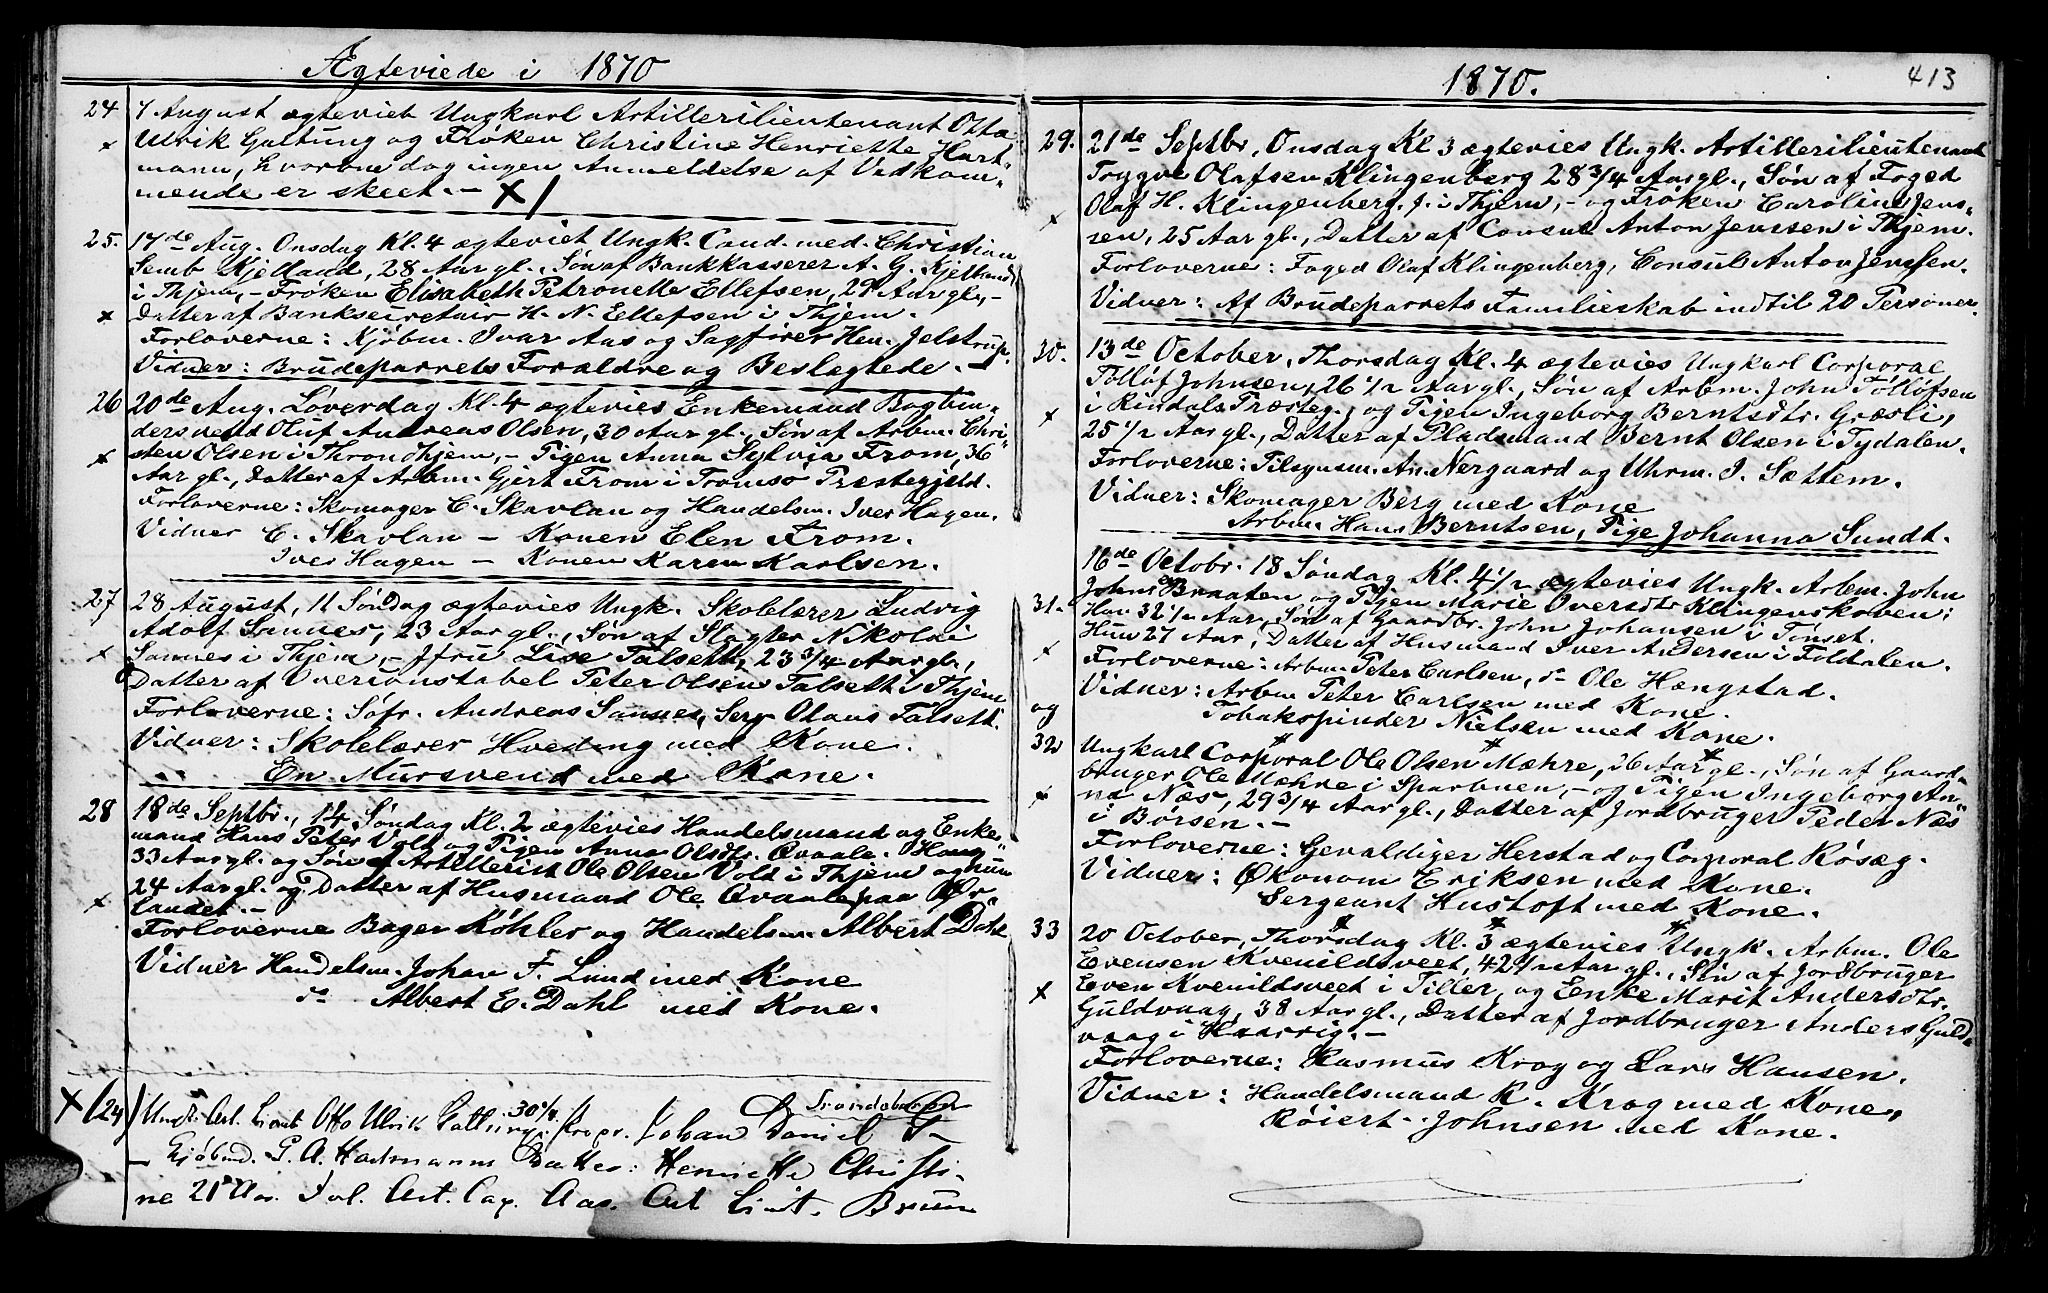 Ægteviede i 1870
24 7 August ægteviet Ungkarl Artillerilieutenant Otto
x Ulrik Galtung og Frøken Christine Henriette Hart-
mann, hvorom dog ingen Anmeldelse af Vedkom-
mende er skeet. - X/
25. 17de Aug. Onsdag Kl. 4 ægteviet Ungk. Cand. med. Christian
Semb Kjelland, 28 Aar gl., Søn af Bankkasserer A. G. Kjelland
i Thjem, - Frøken Elisabeth Petronette Ellefsen, 29 Aar gl., -
x Datter af Banksecretair H. N. Ellefsen i Thjem.
Forloverne: Kjøbm. Ivar Aas og Sagfører Hen. Jelstrup.
Vidner: Brudeparrets Forældre og Beslægtede. -
26 20de Aug. Løverdag Kl. 4 ægtevies Enkemand Bogbin-
dersvend Oluf Andreas Olsen, 30 Aar gl., Søn af Arbm. Chri-
x sten Olsen i Throndhjem, - Pigen Anna Sylvia From, 36
Aar gl., Datter af Arbm. Gjert From i Tromsø Præstegjeld.
Forloverne: Skomager C. Skavlan og Handelsm. Iver Hagen.
Vidner C. Skavlan - Konen Elen From.
Iver Hagen - Konen Karen Karlsen.
27 28 August, 11 Søndag ægtevies Ungk. Skolelærer Ludvig
Adolf Sannes, 23 Aar gl., Søn af Slagter Nikolai
x Sannes i Thjem, - Jfru Lise Talsett, 23 3/4 Aar gl.,
Datter af Overconstabel Peter Olsen Talsett i Thjem
Forloverne: Søfr. Andreas Sannes, Serg. Olaus Talsett.
Vidner: Skolelærer Hveding med Kone.
En Mursvend med Kone.
28 18de Septbr., 14 Søndag Kl. 2 ægtevies Handelsmand og Enke-
mand Hans Peter Vold og Pigen Anna Olsdtr. Qvaale. Han
33 Aar gl. og Søn af Artillerist Ole Olsen Vold i Thjem og hun
24 Aar gl. og Datter af Husmand Ole Qvaale paa Ør-
x landet. -
Forloverne Bager Köhler og Handelsm. Albert Dahl
Vidner Handelsm. Johan F. Lund med Kone
do Albert E. Dahl med Kone.
x (24) Ungk. Art. Lieut Otto Ulrik Galtung 30 1/4, Propr. Johan Daniel
- Kjøbmd. P. A. Hartmanns Datter: Henriette Christi-
ne 21 Aar. Forl. Art. Cap. Aas. Art Lieut. Bruun
1870. 413
29. 21de Septbr, Onsdag Kl 3 ægtevies Ungk. Artillerilieutenant
Tryggve Olafsen Klingenberg 28 3/4 Aar gl., Søn af Foged
x Olaf H. Klingenberg. j. i Thjem, - og Frøken Caroline Jens-
sen, 25 Aar gl., Datter af Consul Anton Jenssen i Thjem.
Forloverne: Foged Olaf Klingenberg, Consul Anton Jenssen.
Vidner: Af Brudeparrets Familieskab indtil 20 Personer.
30. 13de October, Thorsdag Kl. 4 ægtevies Ungkarl Corporal
Tolløf Johnsen, 26 1/2 Aar gl., Søn af Arbm. John Tolløfsen
x i Rindals Præsteg., og Pigen Ingeborg Berntsdtr. Græsli,
25 1/2 Aar gl., Datter af Pladsmand Bernt Olsen i Tydalen.
Forloverne: Tilsynsm. An. Nergaard og Uhrm. I. Sættem.
Vidner: Skomager Berg med Kone
Arbm. Hans Berntsen, Pige Johanna Sundt.
16de Octobr. 18 Søndag Kl. 4 1/2 ægtevies Ungk. Arbm. John
31. Johns. Braaten og Pigen Marie Oversdtr Klingenskoven:
Han 32 1/2 Aar, Søn af Gaardbr. John Johansen i Tønset.
x Hun 27 Aar, Datter af Husmand Iver Andersen i Foldalen.
Forloverne: Arbm Peter Carlsen, do Ole Hængstad.
Vidner: Arbm Peter Carlsen med Kone.
og Tobakspinder Nielsen med Kone.
32 Ungkarl Corporal Ole Olsen Mæhre, 26 Aar gl., Søn af Gaard-
bruger Ole Mæhre i Sparbuen, - og Pigen Ingeborg An-
x na Næs, 29 3/4 Aar gl., Datter af Jordbruger Peder Næs
i Børsen. -
Forloverne: Gevaldiger Herstad og Corporal Røsæg.
Vidner: Økonom Eriksen med Kone.
Sergeant Hustoft med Kone.
33 20 October, Thorsdag Kl. 3 ægtevies Ungk. Arbm. Ole
Evensen Kvenildsveet, 42 1/2 Aar gl., Søn af Jordbruger
x Even Kvenildsveet i Tiller, og Enke Marit Andersdtr.
Guldvaag, 38 Aar gl., Datter af Jordbruger Anders Guld-
vaag i Haarrig. -
Forloverne: Rasmus Krog og Lars Hansen.
Vidner: Handelsmand R. Krog med Kone,
Røiert Johnsen med Kone.